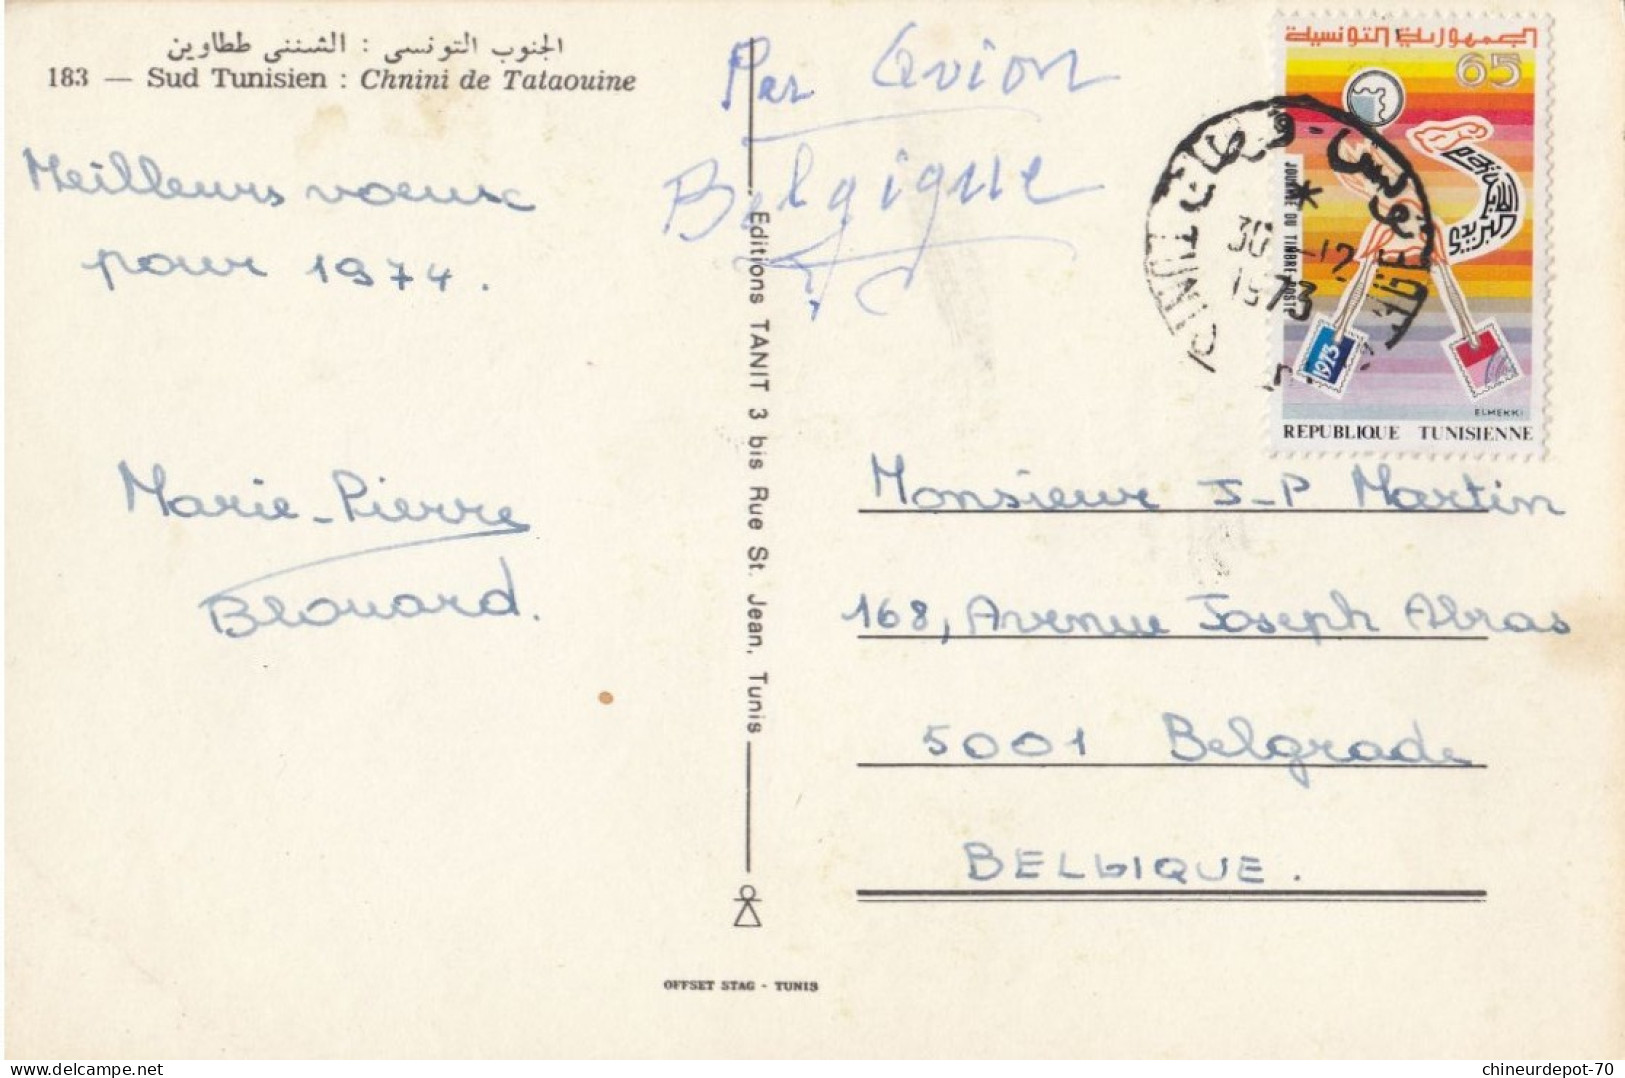 الجنوب التونسي : الشنني ططاوين
183 — Sud Tunisien : Chnini de Tataouine
Par Avion
Belgique
Meilleurs voeux
pour 1974.
Marie-Pierre
Blouard.
Editions TANIT 3 bis Rue St. Jean, Tunis
OFFSET STAG - TUNIS
الجمهورية التونسية
65
JOURNEE DU TIMBRE-POSTE
1973
ELMEKKI
REPUBLIQUE TUNISIENNE
تونس
30 -12
1973
Monsieur J-P Martin
168, Avenue Joseph Abras
5001 Belgrade
BELGIQUE.
https://www.delcampe.net
chineurdepot-70